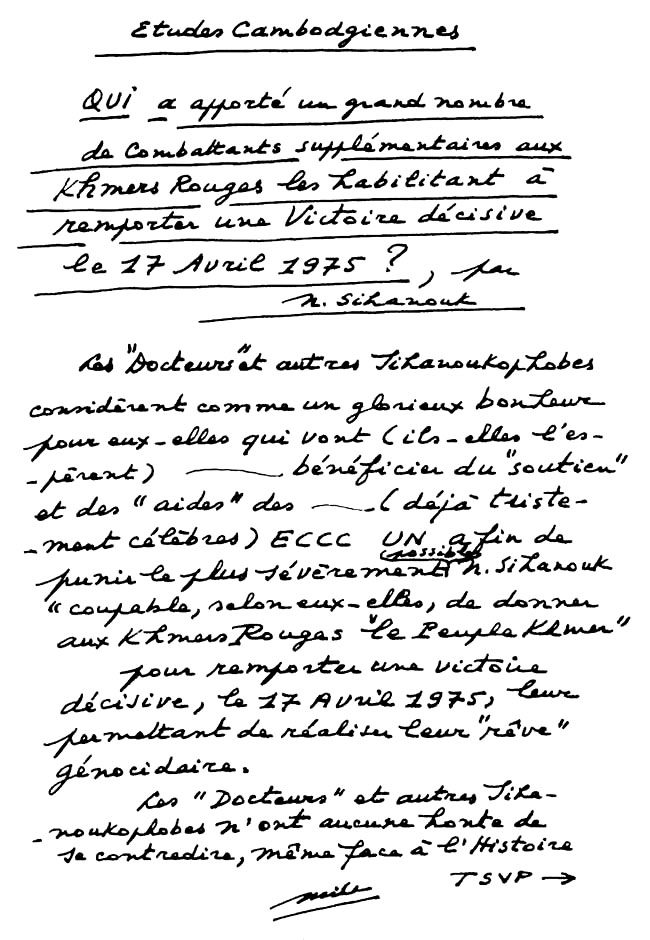 Etudes Cambodgiennes
QUI a apporté un grand nombre
de Combattants supplémentaires aux
Khmers Rouges les habilitant à
remporter une Victoire décisive
le 17 Avril 1975 ?, par
N. Sihanouk
Les "Docteurs" et autres Sihanoukophobes
considèrent comme un glorieux bonheur
pour eux-elles qui vont (ils-elles l'es-
-pèrent) ——— bénéficier du "soutien"
et des "aides" des ——— (déjà triste-
-ment célèbres) ECCC UN afin de
(possible)
punir le plus sévèrement N. Sihanouk
"coupable, selon eux-elles, de donner
aux Khmers Rouges "le Peuple Khmer"
pour remporter une victoire
décisive, le 17 Avril 1975, leur
permettant de réaliser leur "rêve"
génocidaire.
Les "Docteurs" et autres Siha-
-noukophobes n'ont aucune honte de
se contredire, même face à l'Histoire
TSVP →